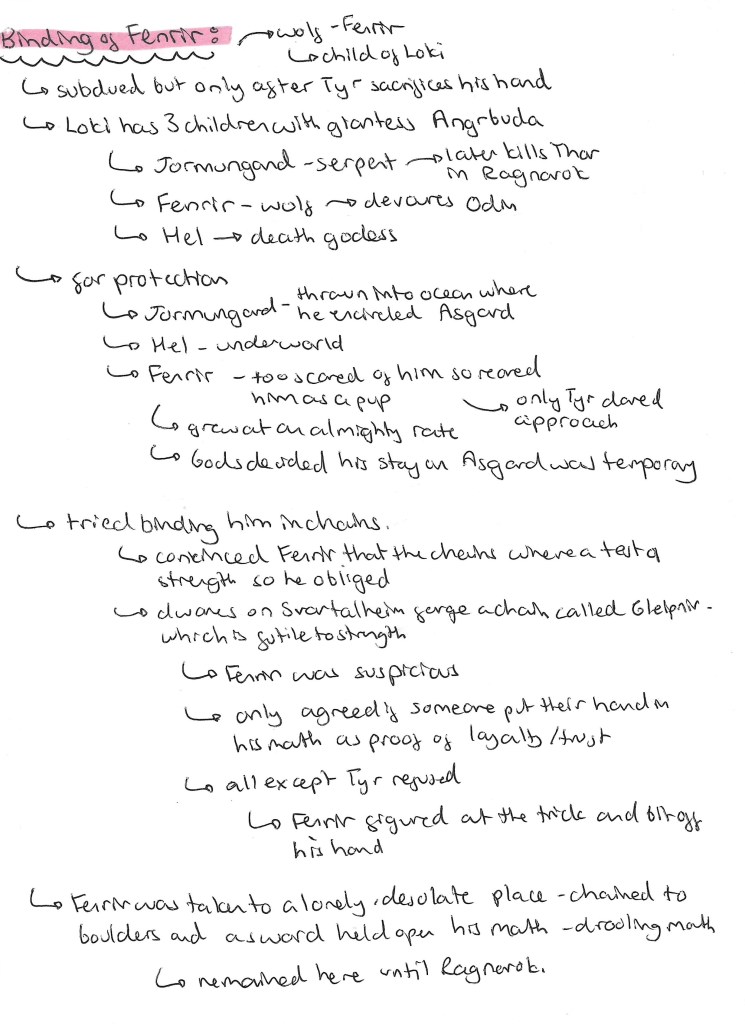 Binding of Fenrir: → wolf - Fenrir
↳ child of Loki
↳ subdued but only after Tyr sacrifices his hand
↳ Loki has 3 children with giantess Angrbuda
↳ Jormungand - serpent → later kills Thor
in Ragnarok
↳ Fenrir - wolf → devoures Odin
↳ Hel → death godess
↳ for protection
↳ Jormungard - thrown into ocean where
he encircled Asgard
↳ Hel - underworld
↳ Fenrir - too scared of him so reared
him as a pup
↳ only Tyr dared
approach
↳ grew at an almighty rate
↳ Gods decided his stay on Asgard was temporay
↳ tried binding him in chains.
↳ convinced Fenrir that the chains where a test of
strength so he obliged
↳ dwarves on Svartalheim forge a chain called Glelpnir -
which is futile to strength
↳ Fenrir was suspicious
↳ only agreed if someone put their hand in
his math as proof of loyalty/trust
↳ all except Tyr refused
↳ Fenrir figured out the trick and bit off
his hand
↳ Fenrir was taken to a lonely, desolate place - chained to
boulders and a sword held open his math - drooling math
↳ remained here until Ragnarok.